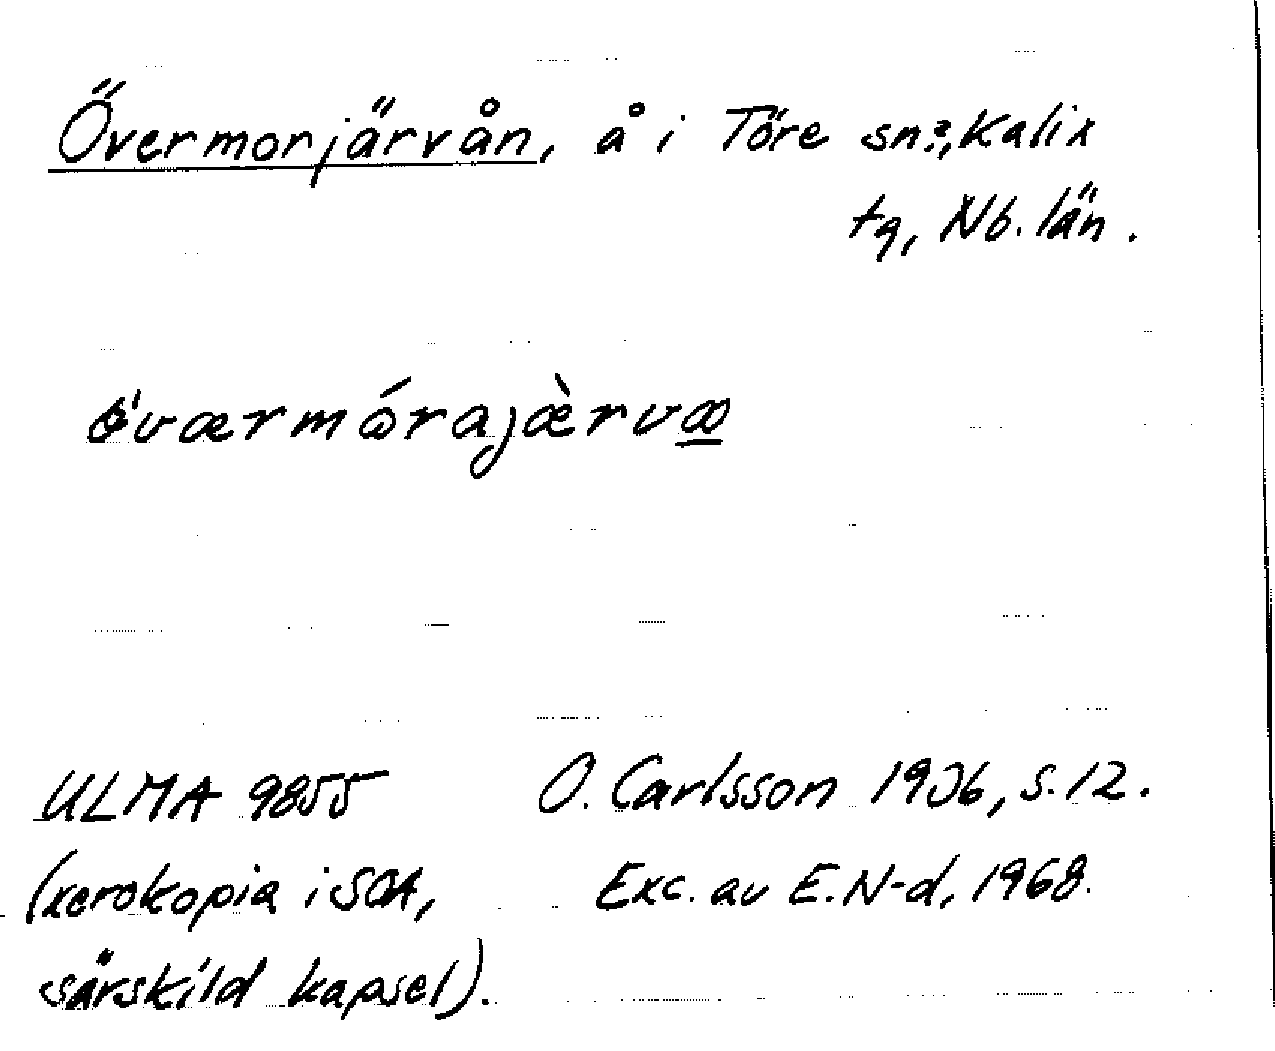 Övermorjärvån, å i Töre sn?, Kalix
tg, Nb. län.
óværmɷ́rajæ̀rvæ̲
ULMA 9855 O. Carlsson 1936, s. 12.
(xerokopia i SOA, Exc. av E. N-d, 1968.
särskild kapsel).